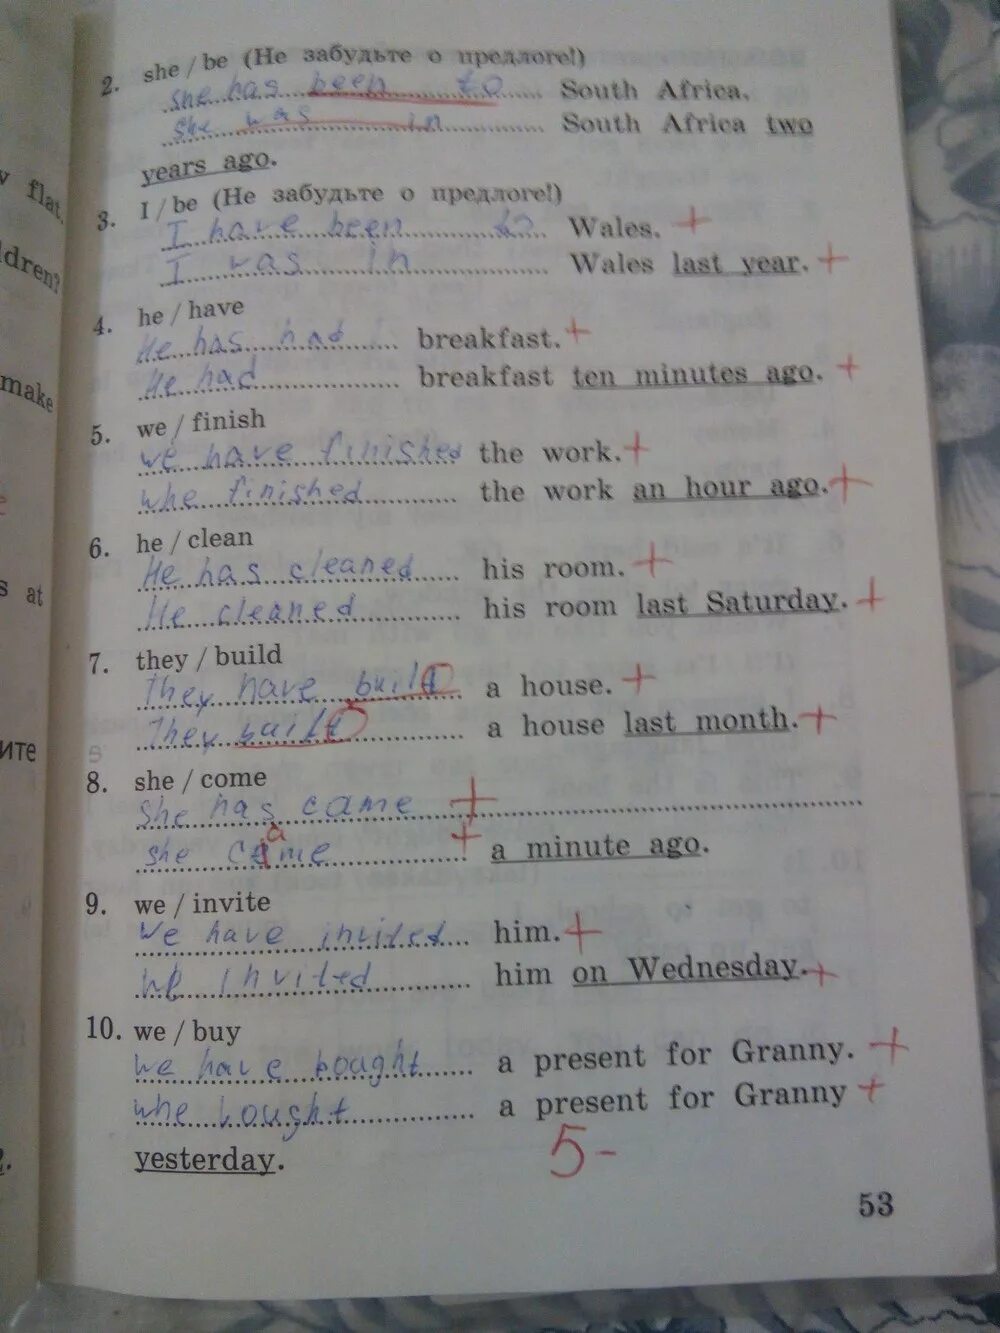 2. she / be (Не забудьте о предлоге!)
she has been to South Africa.
she was in South Africa two
years ago.
3. I / be (Не забудьте о предлоге!)
I have been to Wales. +
I was in Wales last year. +
4. he / have
He has had breakfast. +
He had breakfast ten minutes ago. +
5. we / finish
we have finished the work. +
whe finished the work an hour ago. +
6. he / clean
He has cleaned his room. +
He cleaned his room last Saturday. +
7. they / build
They have built a house. +
They built a house last month. +
8. she / come
she has came +
a
she came + a minute ago.
9. we / invite
We have invited him. +
we invited him on Wednesday. +
10. we / buy
We have bought a present for Granny. +
whe bought a present for Granny +
yesterday.
5-
53
flat.
ldren?
make
s at
ите